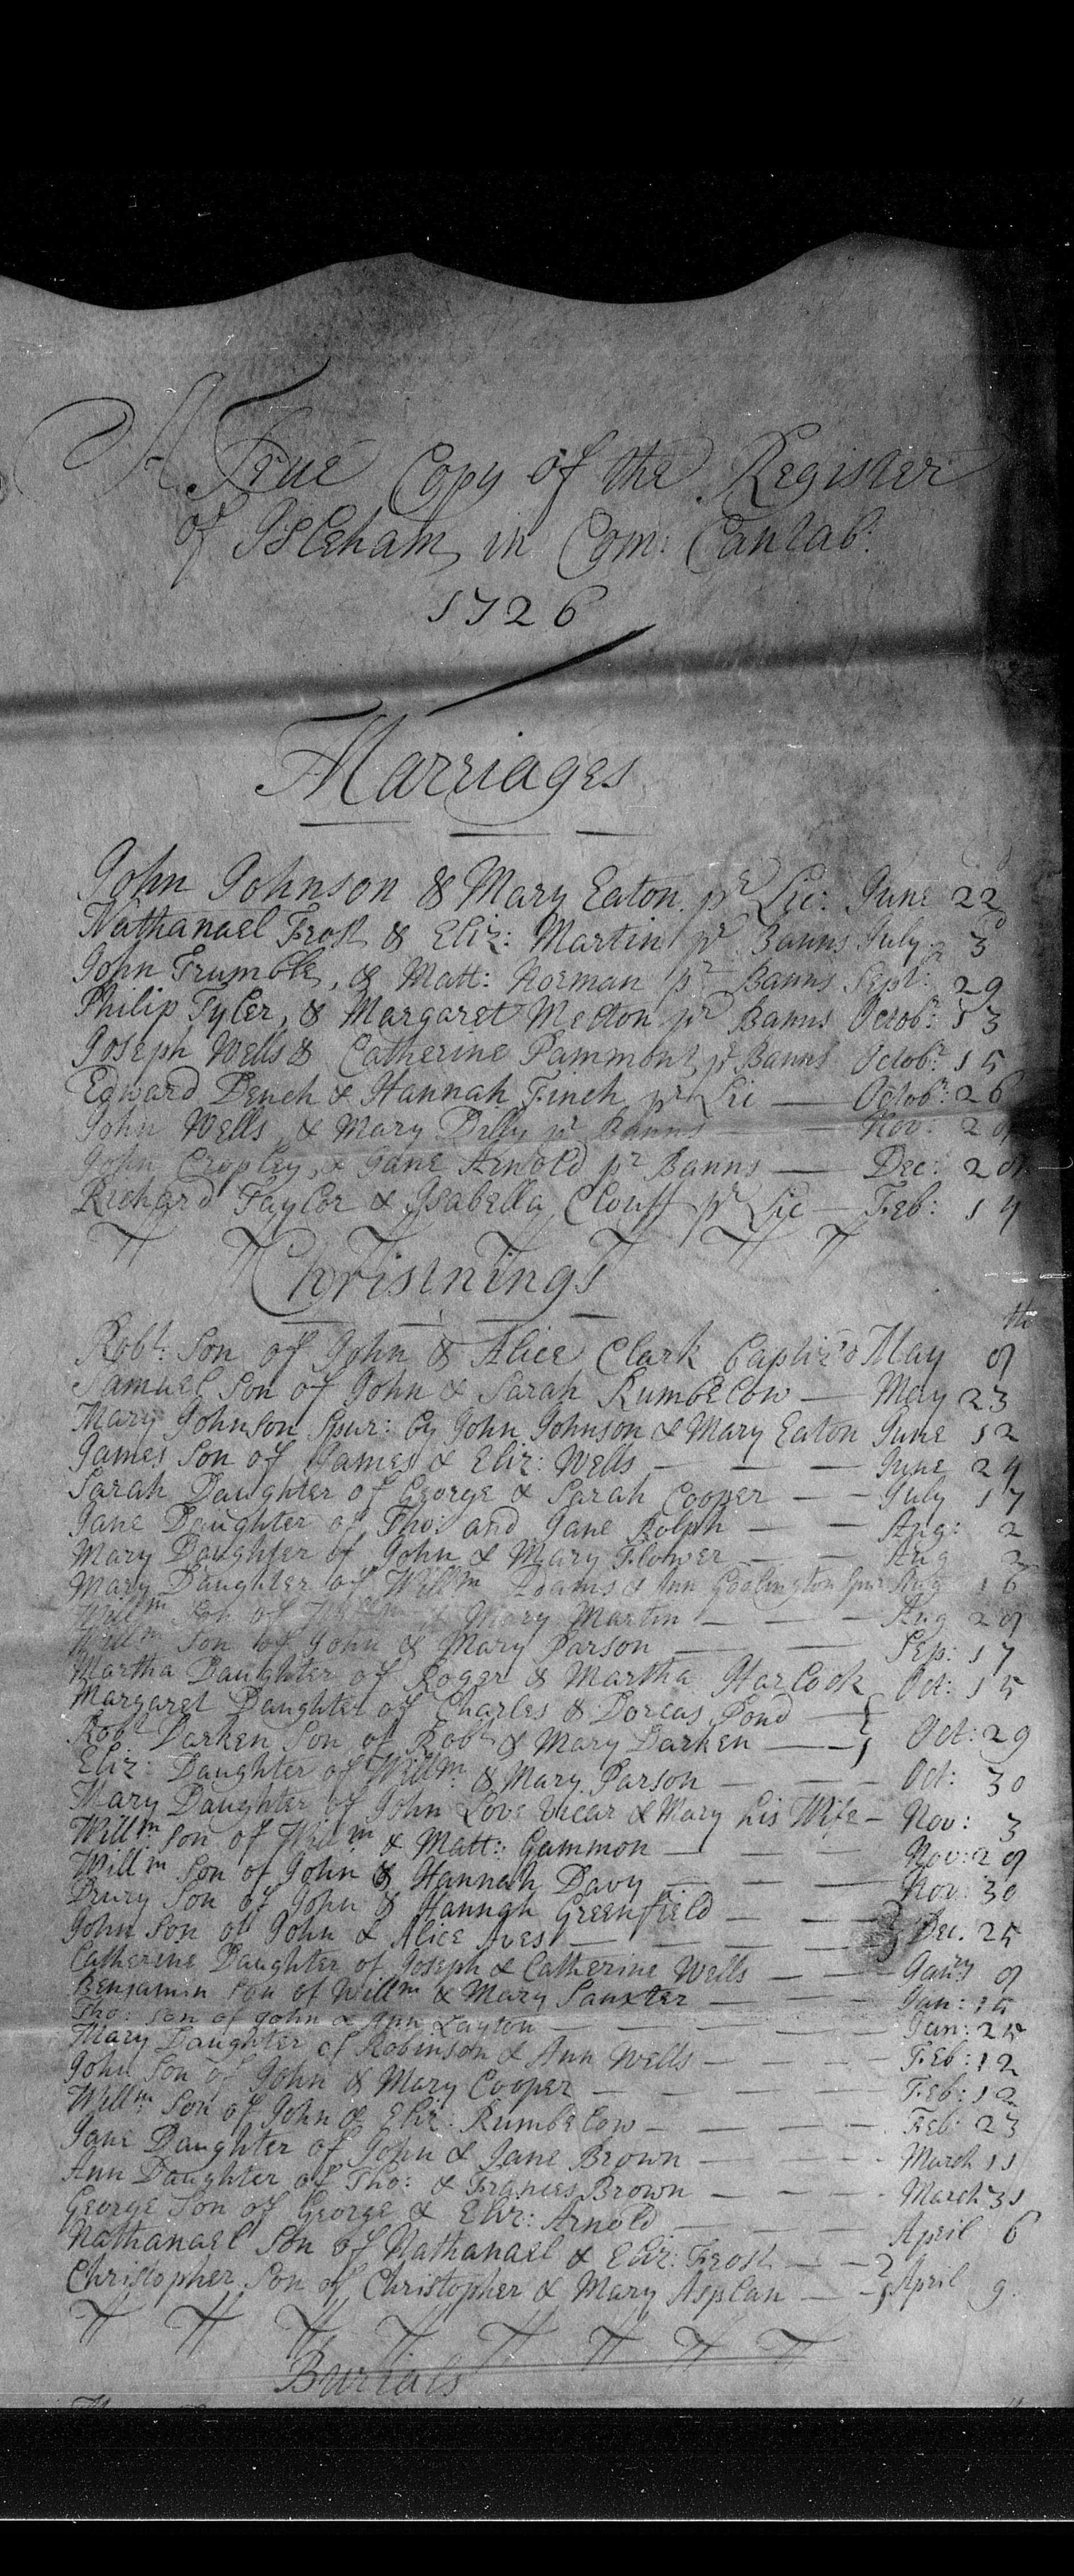 A True Copy of the Register
of Isleham, in Com: Cantab:
1726
Marriages
John Johnson & Mary Eaton pr Lic: June 22d
Nathanael Frost & Eliz: Martin pr Banns July 3d
John Frumble, & Matt: Norman pr Banns Sept: 29
Philip Tyler, & Margaret Melton pr Banns Octobr: 13
Joseph Wells & Catherine Pammont pr Banns Octobr: 15
Edward Dench & Hannah Finch pr Lic — Octobr: 26
John Wells, & Mary Dilly pr Banns — Nov: 20
John Cropley, & Jane Arnold pr Banns — Dec: 20
Richard Taylor & Isabella Clouff pr Lic — Feb: 14
Christnings
Robt: Son of John & Alice Clark baptiz'd May 9th
Samuel Son of John & Sarah Rumbelow — May 23
Mary Johnson Spur: by John Johnson & Mary Eaton June 12
James Son of James & Eliz: Wells — — — June 24
Sarah Daughter of George & Sarah Cooper — — July 17
Jane Daughter of Tho: and Jane Rolph — — Aug: 2
Mary Daughter of John & Mary Flower — — Aug 2
Mary Daughter of Willm Adams & Ann Aug 16
Willm Son of Willm & Mary Martin — — — Aug 29
Willm Son of John & Mary Parson — — Sep: 17
Martha Daughter of Roger & Martha Harlock Oct: 15
Margaret Daughter of Charles & Dorcas Pond —
Robt Darken Son of Robt & Mary Darken — Oct: 29
Eliz: Daughter of Willm & Mary Parson — — — Oct: 30
Mary Daughter of John Love Vicar & Mary his Wife — Nov: 3
Willm Son of Willm & Matt: Gammon — — — Nov: 29
Willm Son of John & Hannah Davy — — — Nov: 30
Drury Son of John & Hannah Greenfield — — —
John Son of John & Alice Aves — — — — Dec. 25
Catherine Daughter of Joseph & Catherine Wells — — Janry 9
Benjamin Son of Willm & Mary Sanxter — — — Jan: 15
Tho: Son of John & Ann Layton — — — — Jan: 25
Mary Daughter of Robinson & Ann Wells — — — Feb: 12
John Son of John & Mary Cooper — — — — Feb: 12
Willm Son of John & Eliz: Rumbelow — — — — Feb: 23
Jane Daughter of John & Jane Brown — — — March 11
Ann Daughter of Tho: & Frances Brown — — — March 31
George Son of George & Eliz: Arnold — — — April 6
Nathanael Son of Nathanael & Eliz: Frost — —
Christopher Son of Christopher & Mary Asplan — — April 9.
Burials